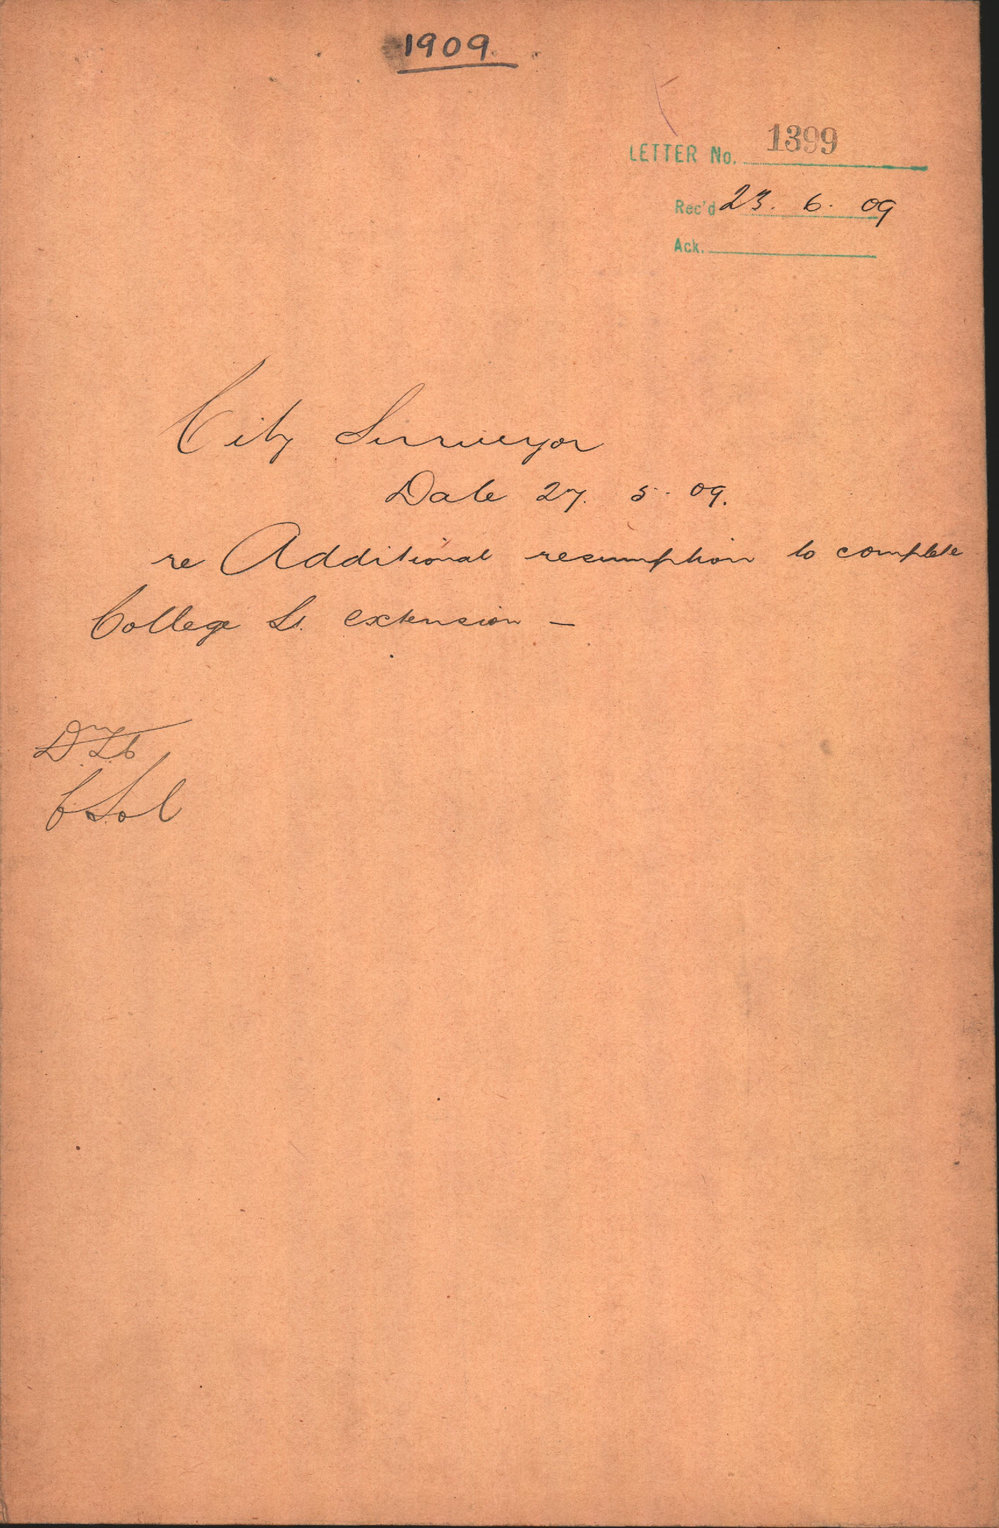 1909.
LETTER No. 1399
Rec'd 23. 6. 09
Ack.
City Surveyor
Date 27. 5. 09.
re Additional resumption to complete
College St. extension —
C. Sol